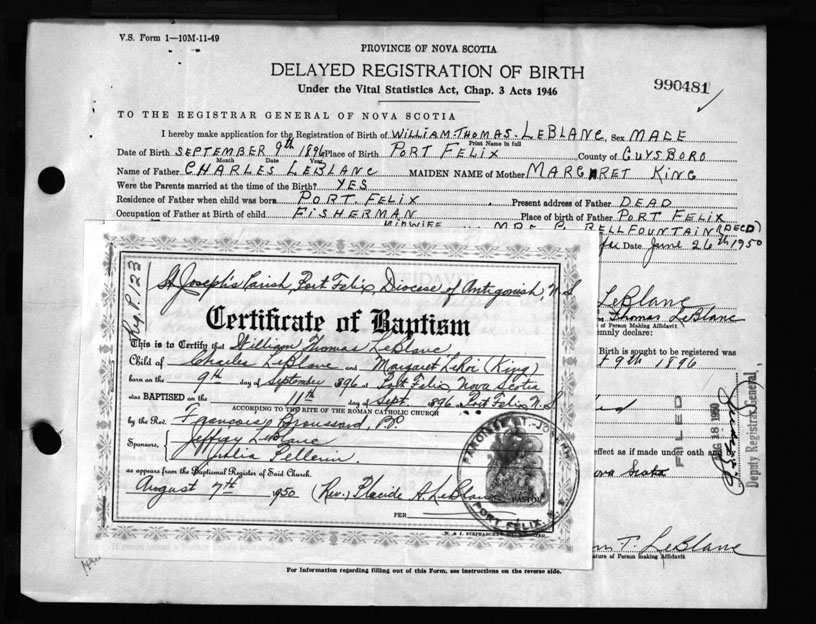 V.S. Form 1—10M-11-49
PROVINCE OF NOVA SCOTIA
DELAYED REGISTRATION OF BIRTH
Under the Vital Statistics Act, Chap. 3 Acts 1946
990481
TO THE REGISTRAR GENERAL OF NOVA SCOTIA
I hereby make application for the Registration of Birth of WILLIAM-THOMAS-LEBLANC, Sex MALE
Print Name in full
Date of Birth SEPTEMBER 9th 1896 Place of Birth PORT FELIX County of GUYSBORO
Month Date Year
Name of Father CHARLES LEBLANC MAIDEN NAME of Mother MARGARET KING
Were the Parents married at the time of the Birth? YES
Residence of Father when child was born PORT. FELIX. Present address of Father DEAD
Occupation of Father at Birth of child FISHERMAN Place of birth of Father PORT FELIX
MIDWIFE MRS BELLFOUNTAIN (DECD)
Date June 26th 1950
LeBlanc
Thomas LeBlanc
of Person Making Affidavit
emnly declare:
Birth is sought to be registered was
9th 1896
FILED
AUG 18 1950
Deputy Registrar General
effect as if made under oath and
ova Scotia
m T. LeBlanc
ature of Person making Affidavit
Reg. P. 123
St Joseph's Parish, Port Felix, Diocese of Antigonish, N.S.
Certificate of Baptism
This is to Certify that William Thomas LeBlanc
Child of Charles LeBlanc and Margaret LeRoi (King)
born on the 9th day of September 1896 at Port Felix Nova Scotia
was BAPTISED on the 11th day of Sept. 1896 at Port Felix N.S.
ACCORDING TO THE RITE OF THE ROMAN CATHOLIC CHURCH
by the Rev. Francois Broussard, P.P.
Sponsors, Jeffrey LeBlanc
Julia Pellerin.
as appears from the Baptismal Register of Said Church.
August 7th 1950 (Rev.) Placide A. LeBlanc PASTOR
PER
PAROISSE ST.-JOSEPH
PORT FELIX, N.S.
For Information regarding filling out of this Form, see instructions on the reverse side.